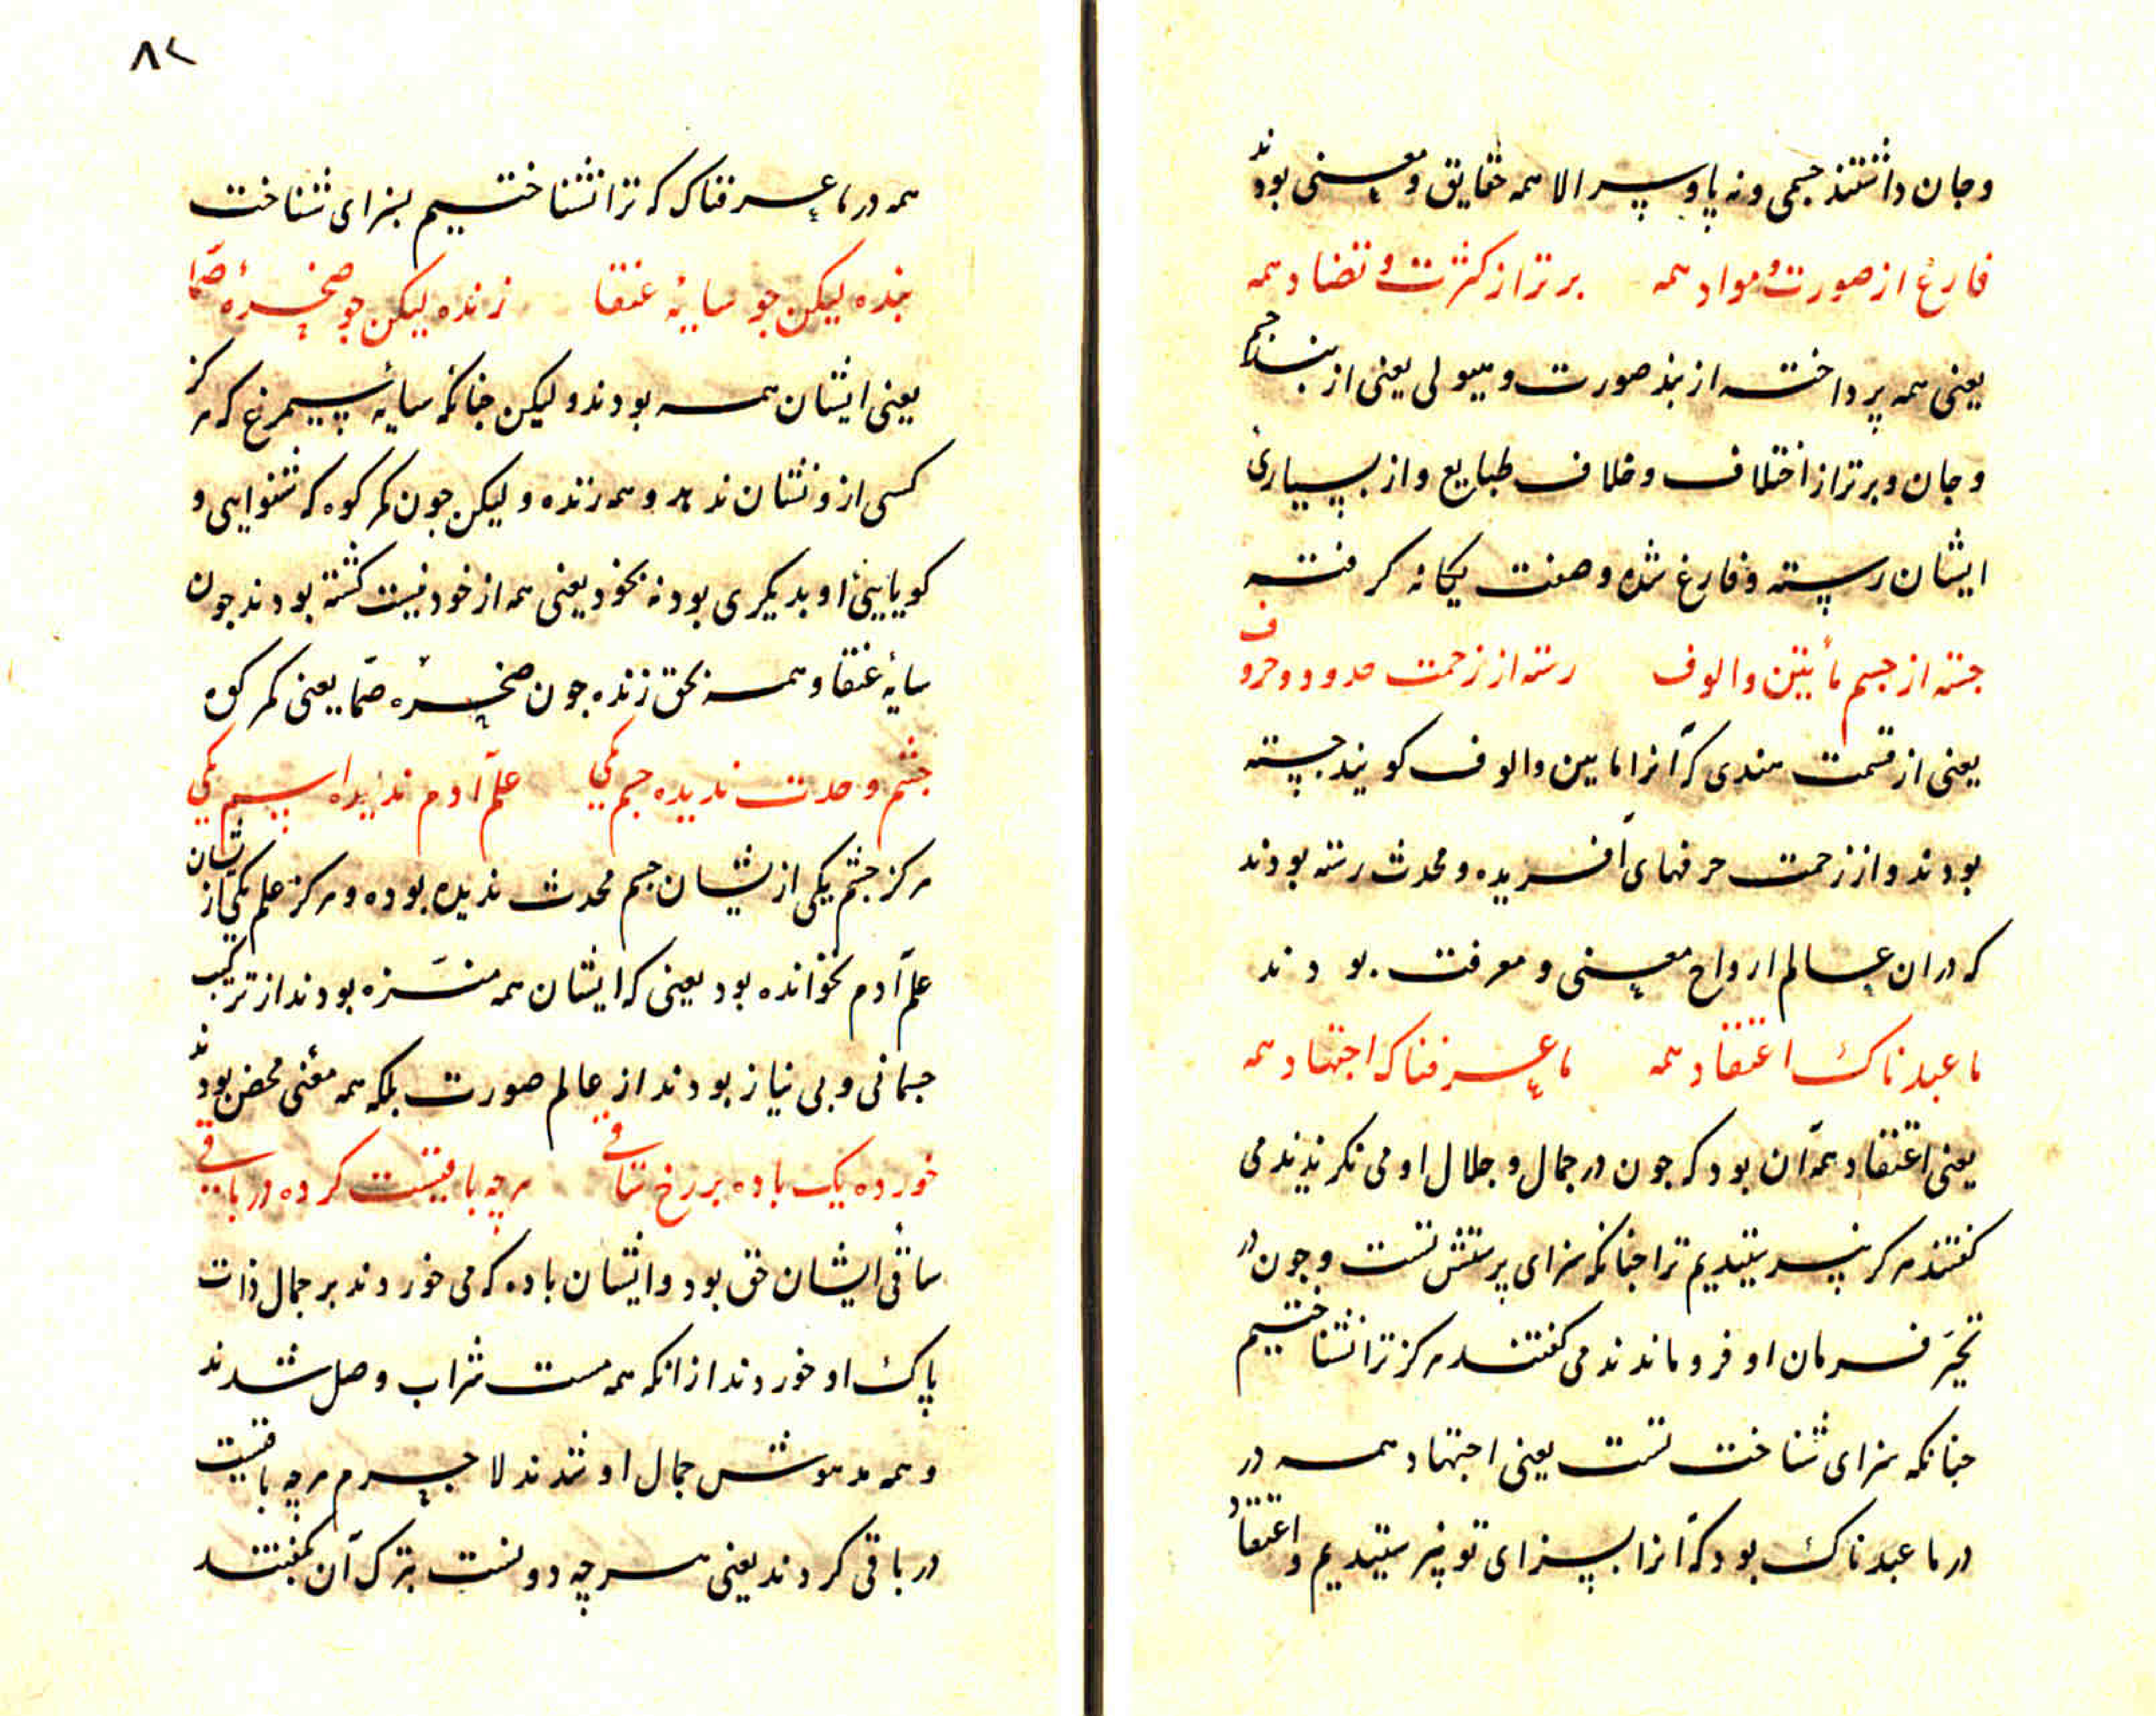 و جان داشتند جسمی و نه پا و سر الا همه حقایق و معنی بودند
فارغ از صورت و مواد همه برتر از کثرت و تضاد همه
یعنی همه پرداخته از بند صورت و هیولی یعنی از بند جسم
و جان و برتر از اختلاف و خلاف طبایع و از بسیاری
ایشان رسته و فارغ شده و صفت یکانه کرفته
جسته از جسم مأبین و الوف رسته از زحمت حدود و حروف
یعنی از قسمت هندی که آنرا مابین و الوف کویند جسته
بودند و از زحمت حرفهای آفریده و محدث رسته بودند
که در ان عالم ارواح معنی و معرفت بودند
ما عبدناک اعتقاد همه ما عرفناک اجتهاد همه
یعنی اعتقاد همه آن بود که جون در جمال و جلال او می نکریدند می
کفتند هرکز نپرستیدیم ترا جنانکه سزای پرستش تست و جون در
تحیّر فرمان او فرو ماندند می کفتند هرکز ترا نشناختیم
جنانکه سزای شناخت تست یعنی اجتهاد همه در
در ما عبدناک بود که آنرا بسزای تو نپرستیدیم و اعتقاد
۸۲
همه در ما عرفناک که ترا نشناختیم بسزای شناخت
بنده لیکن جو سایهٔ عنقا زنده لیکن جو صخرهٔ صمّا
یعنی ایشان همه بودند و لیکن جنانکه سایهٔ سیمرغ که هرکز
کسی از و نشان ندهد و همه زنده و لیکن جون کمر کوه که شنوایی و
کویایی او بدیکری بود نه بخود یعنی همه از خود نیست کشته بودند جون
سایهٔ عنقا و همه بحق زنده جون صخرهٔ صمّا یعنی کمر کوه
جشم وحدت ندیده جسم یکی علم آدم ندیده اسم یکی
هرکز جشم یکی از یشان جسم محدث ندیده بوده و هرکز علم یکی از یشان
علم آدم نخوانده بود یعنی که ایشان همه منزّه بودند از ترکیب
جسمانی و بی نیاز بودند از عالم صورت بلکه همه معنی محض بودند
خورده یک باده بر رخ ساقی هرچه باقیست کرده در باقی
ساقی ایشان حق بود و ایشان باده که می خوردند بر جمال ذات
پاک او خوردند از انکه همه مست شراب وصل شدند
و همه مدهوش جمال او شدند لا جرم هرچه باقیست
در باقی کردند یعنی هرچه دونست بترک آن بکفتند